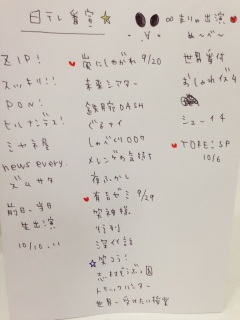 日テレ番宣
まりゅ出演
め〜べ〜
ZIP!
スッキリ!!
PON!
ヒルナンデス!
ミヤネ屋
news every.
ズムサタ
前日、当日
生出演
10/10.11
嵐にしやがれ 9/20
未来シアター
鉄腕DASH
ぐるナイ
しゃべくり007
メレンゲの気持ち
夜ふかし
有吉ゼミ 9/29
笑神様
行列
深イイ話
笑コラ!
志村どうぶつ園
トリックハンター
世界一受けたい授業
世界番付
おしゃれイズム
シューイチ
TORE! SP
10/6